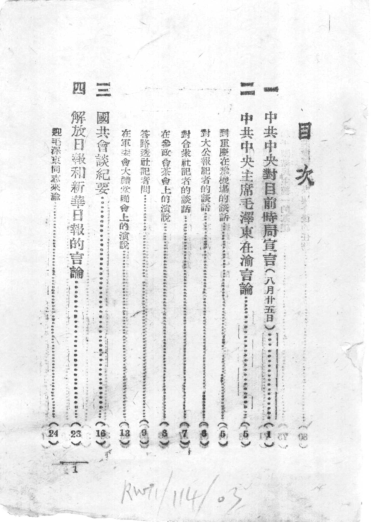 目次
一 中共中央對目前時局宣言（八月廿五日）……（1）
二 中共中央主席毛澤東在渝言論……（5）
到重慶在飛機場的談話……（5）
對大公報記者的談話……（6）
對合衆社記者的談話……（7）
在參政會茶會上的演說……（8）
答路透社記者問……（9）
在軍委會大禮堂晚會上的演說……（13）
三 國共會談紀要……（16）
四 解放日報和新華日報的言論……（23）
毛澤東同志來渝……（24）
1
RW71/114/03